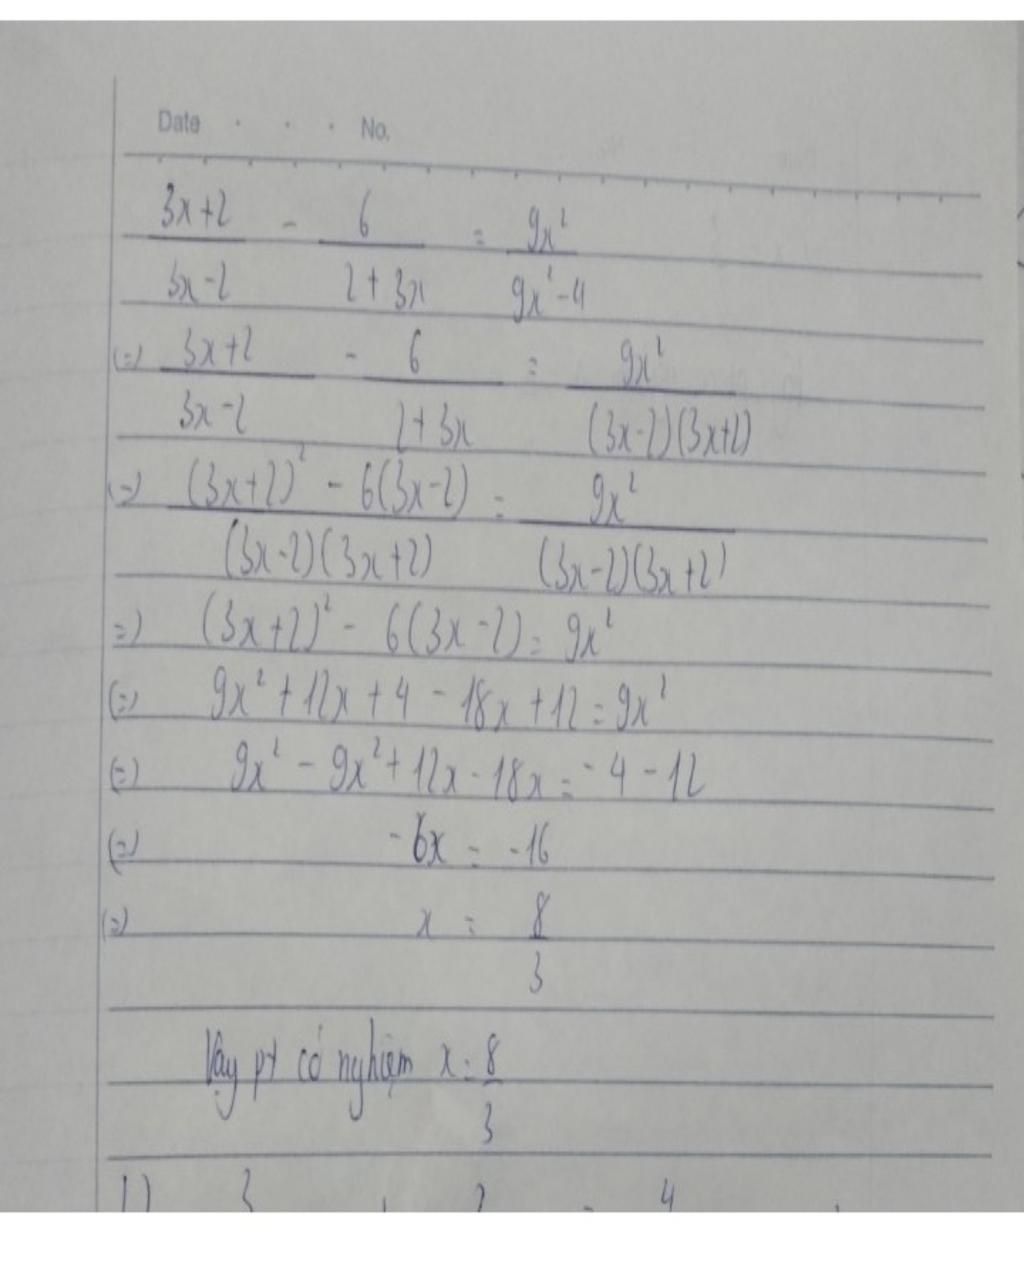 Date . . . No.
3x+2 / 3x-2 - 6 / 2+3x = 9x² / 9x²-4
(=) 3x+2 / 3x-2 - 6 / 2+3x = 9x² / (3x-2)(3x+2)
(=) (3x+2)² - 6(3x-2) / (3x-2)(3x+2) = 9x² / (3x-2)(3x+2)
=) (3x+2)² - 6(3x-2) = 9x²
(=) 9x² + 12x + 4 - 18x + 12 = 9x²
(=) 9x² - 9x² + 12x - 18x = -4 - 12
(=) -6x = -16
(=) x = 8 / 3
Vậy pt có nghiệm x = 8 / 3